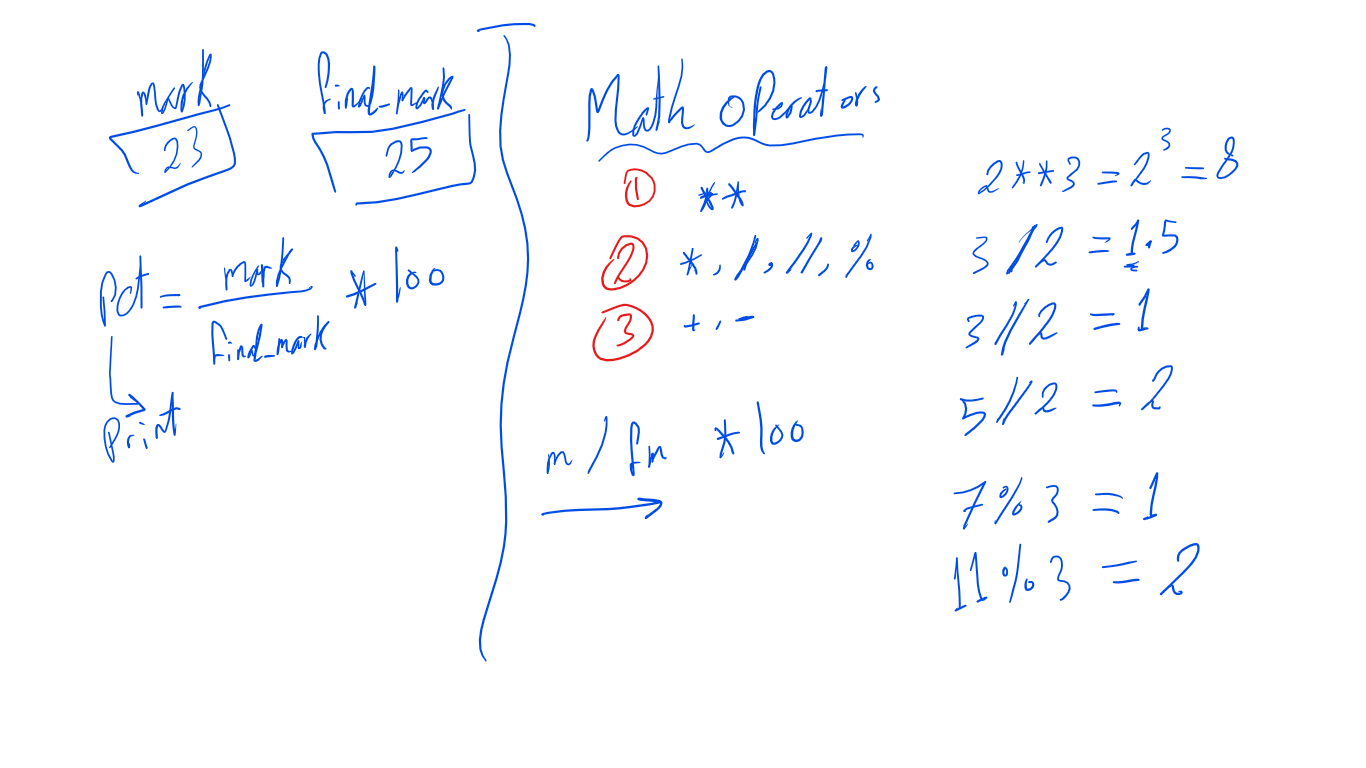 mark final_mark
23 25
Pct = mark / final_mark * 100
Print
Math Operators
① **
② *, /, //, %
③ +, -
m / fm * 100
2**3 = 2³ = 8
3 / 2 = 1.5
3 // 2 = 1
5 // 2 = 2
7 % 3 = 1
11 % 3 = 2